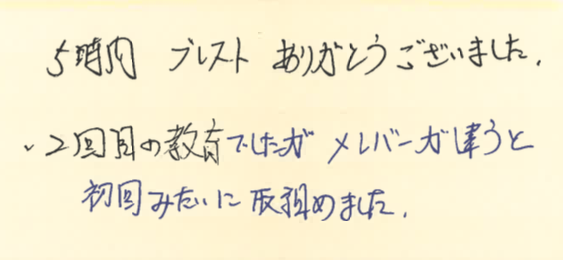 5時間 ブレスト ありがとうございました.
・2回目の教育でしたが メンバーが違うと
初回みたいに取組めました.